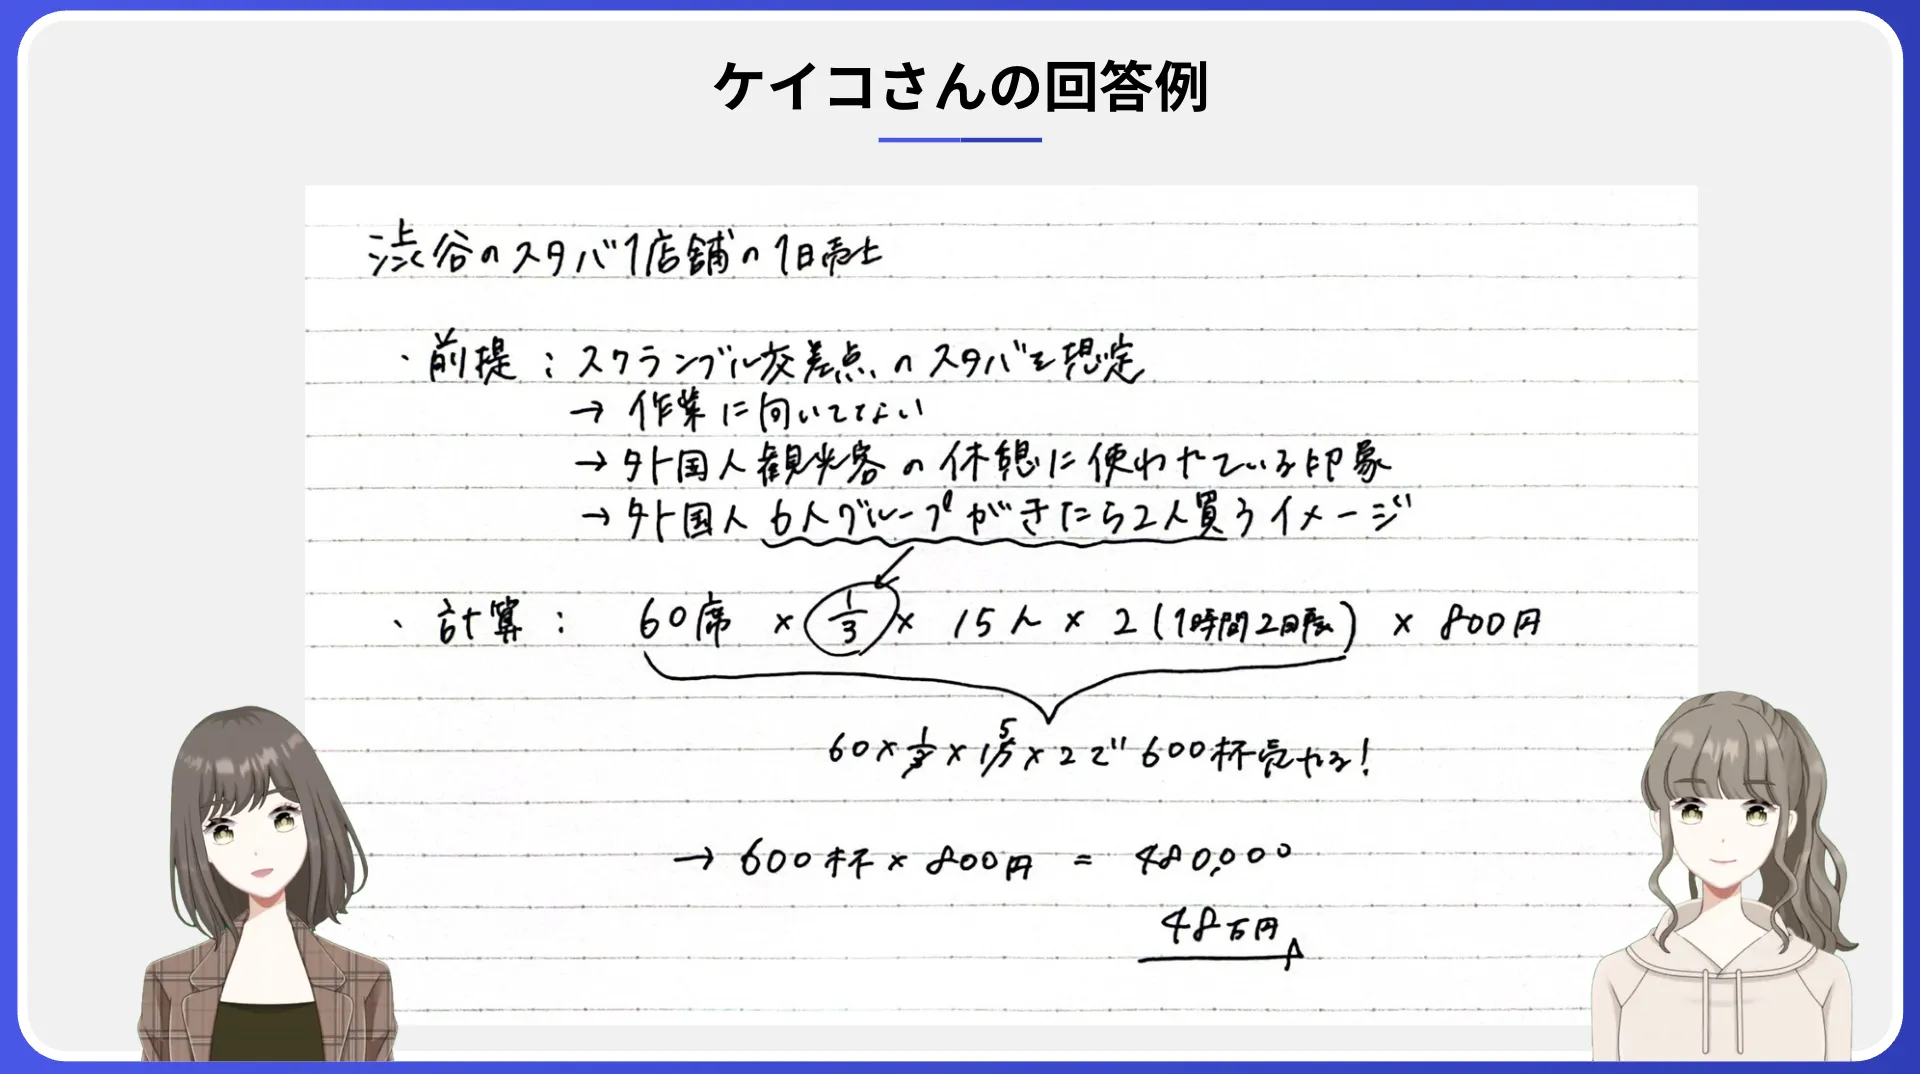 ケイコさんの回答例
渋谷のスタバ1店舗の1日売上
・前提：スクランブル交差点のスタバを想定
→ 作業に向いてない
→ 外国人観光客の休憩に使われている印象
→ 外国人6人グループがきたら2人買うイメージ
・計算： 60席 × 1/3 × 15h × 2 (1時間2回転) × 800円
60 × 1/3 × 15 5 × 2で600杯売れる!
→ 600杯 × 800円 = 480,000
48万円